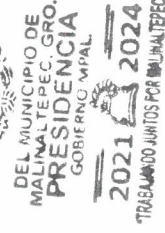 DEL MUNICIPIO DE
MALINALTEPEC, GRO.
PRESIDENCIA
GOBIERNO MPAL.
2021 2024
TRABAJANDO JUNTOS POR MALINALTEPEC